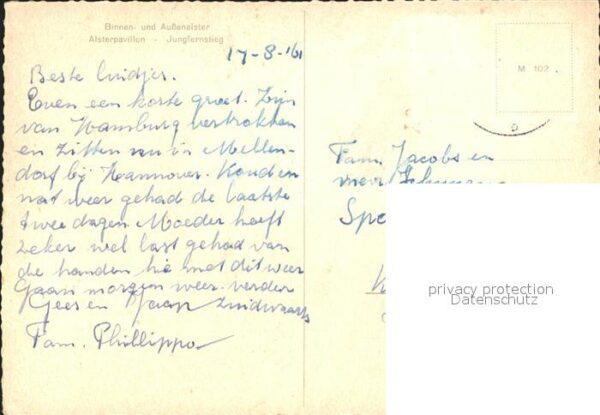 Binnen- und Außenalster
Alsterpavillon - Jungfernstieg
17-8-'61
Beste luidjes.
Even een korte groet. Zijn
van Hamburg vertrokken
en zitten nu in Mellen-
dorf bij Hannover. Koud en
nat weer gehad de laatste
twee dagen Moeder heeft
zeker wel last gehad van
de handen hè met dit weer
Gaan morgen weer verder
Gees en Jaap Zuidwaarts
Fam. Phillippo
M 102
Fam. Jacobs en
mevr.
Spo
privacy protection
Datenschutz